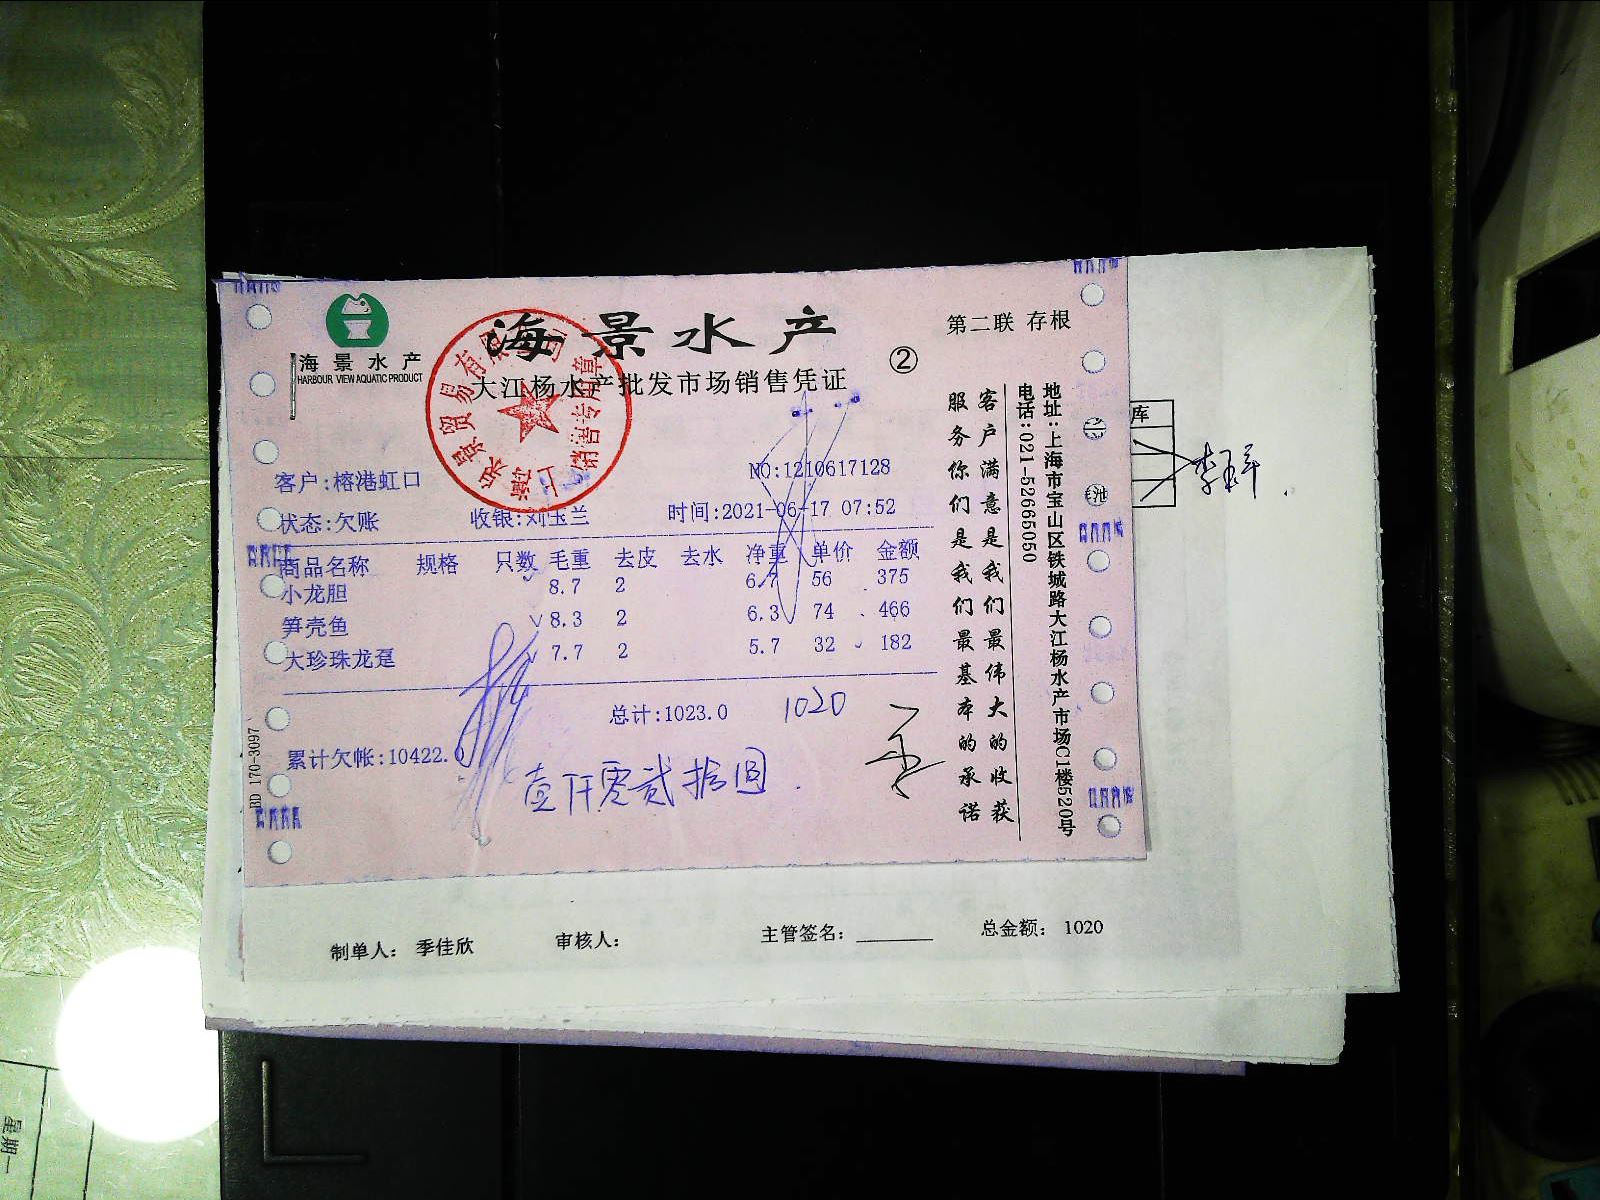 海景水产
HARBOUR VIEW AQUATIC PRODUCT
海景水产
大江杨水产批发市场销售凭证
②
第二联 存根
销售专用章
客户:榕港虹口
NO:1210617128
状态:欠账 收银:刘玉兰 时间:2021-06-17 07:52
商品名称 规格 只数 毛重 去皮 去水 净重 单价 金额
小龙胆 8.7 2 6.7 56 375
笋壳鱼 8.3 2 6.3 74 466
大珍珠龙趸 7.7 2 5.7 32 182
总计:1023.0 1020
累计欠帐:10422.0
壹仟零贰拾圆
BD 170-3097
客户满意是我们最伟大的收获
服务你们是我们最基本的承诺
地址:上海市宝山区铁城路大江杨水产市场C1楼520号
电话:021-52665050
库
制单人: 季佳欣 审核人: 主管签名: 总金额: 1020
星期一